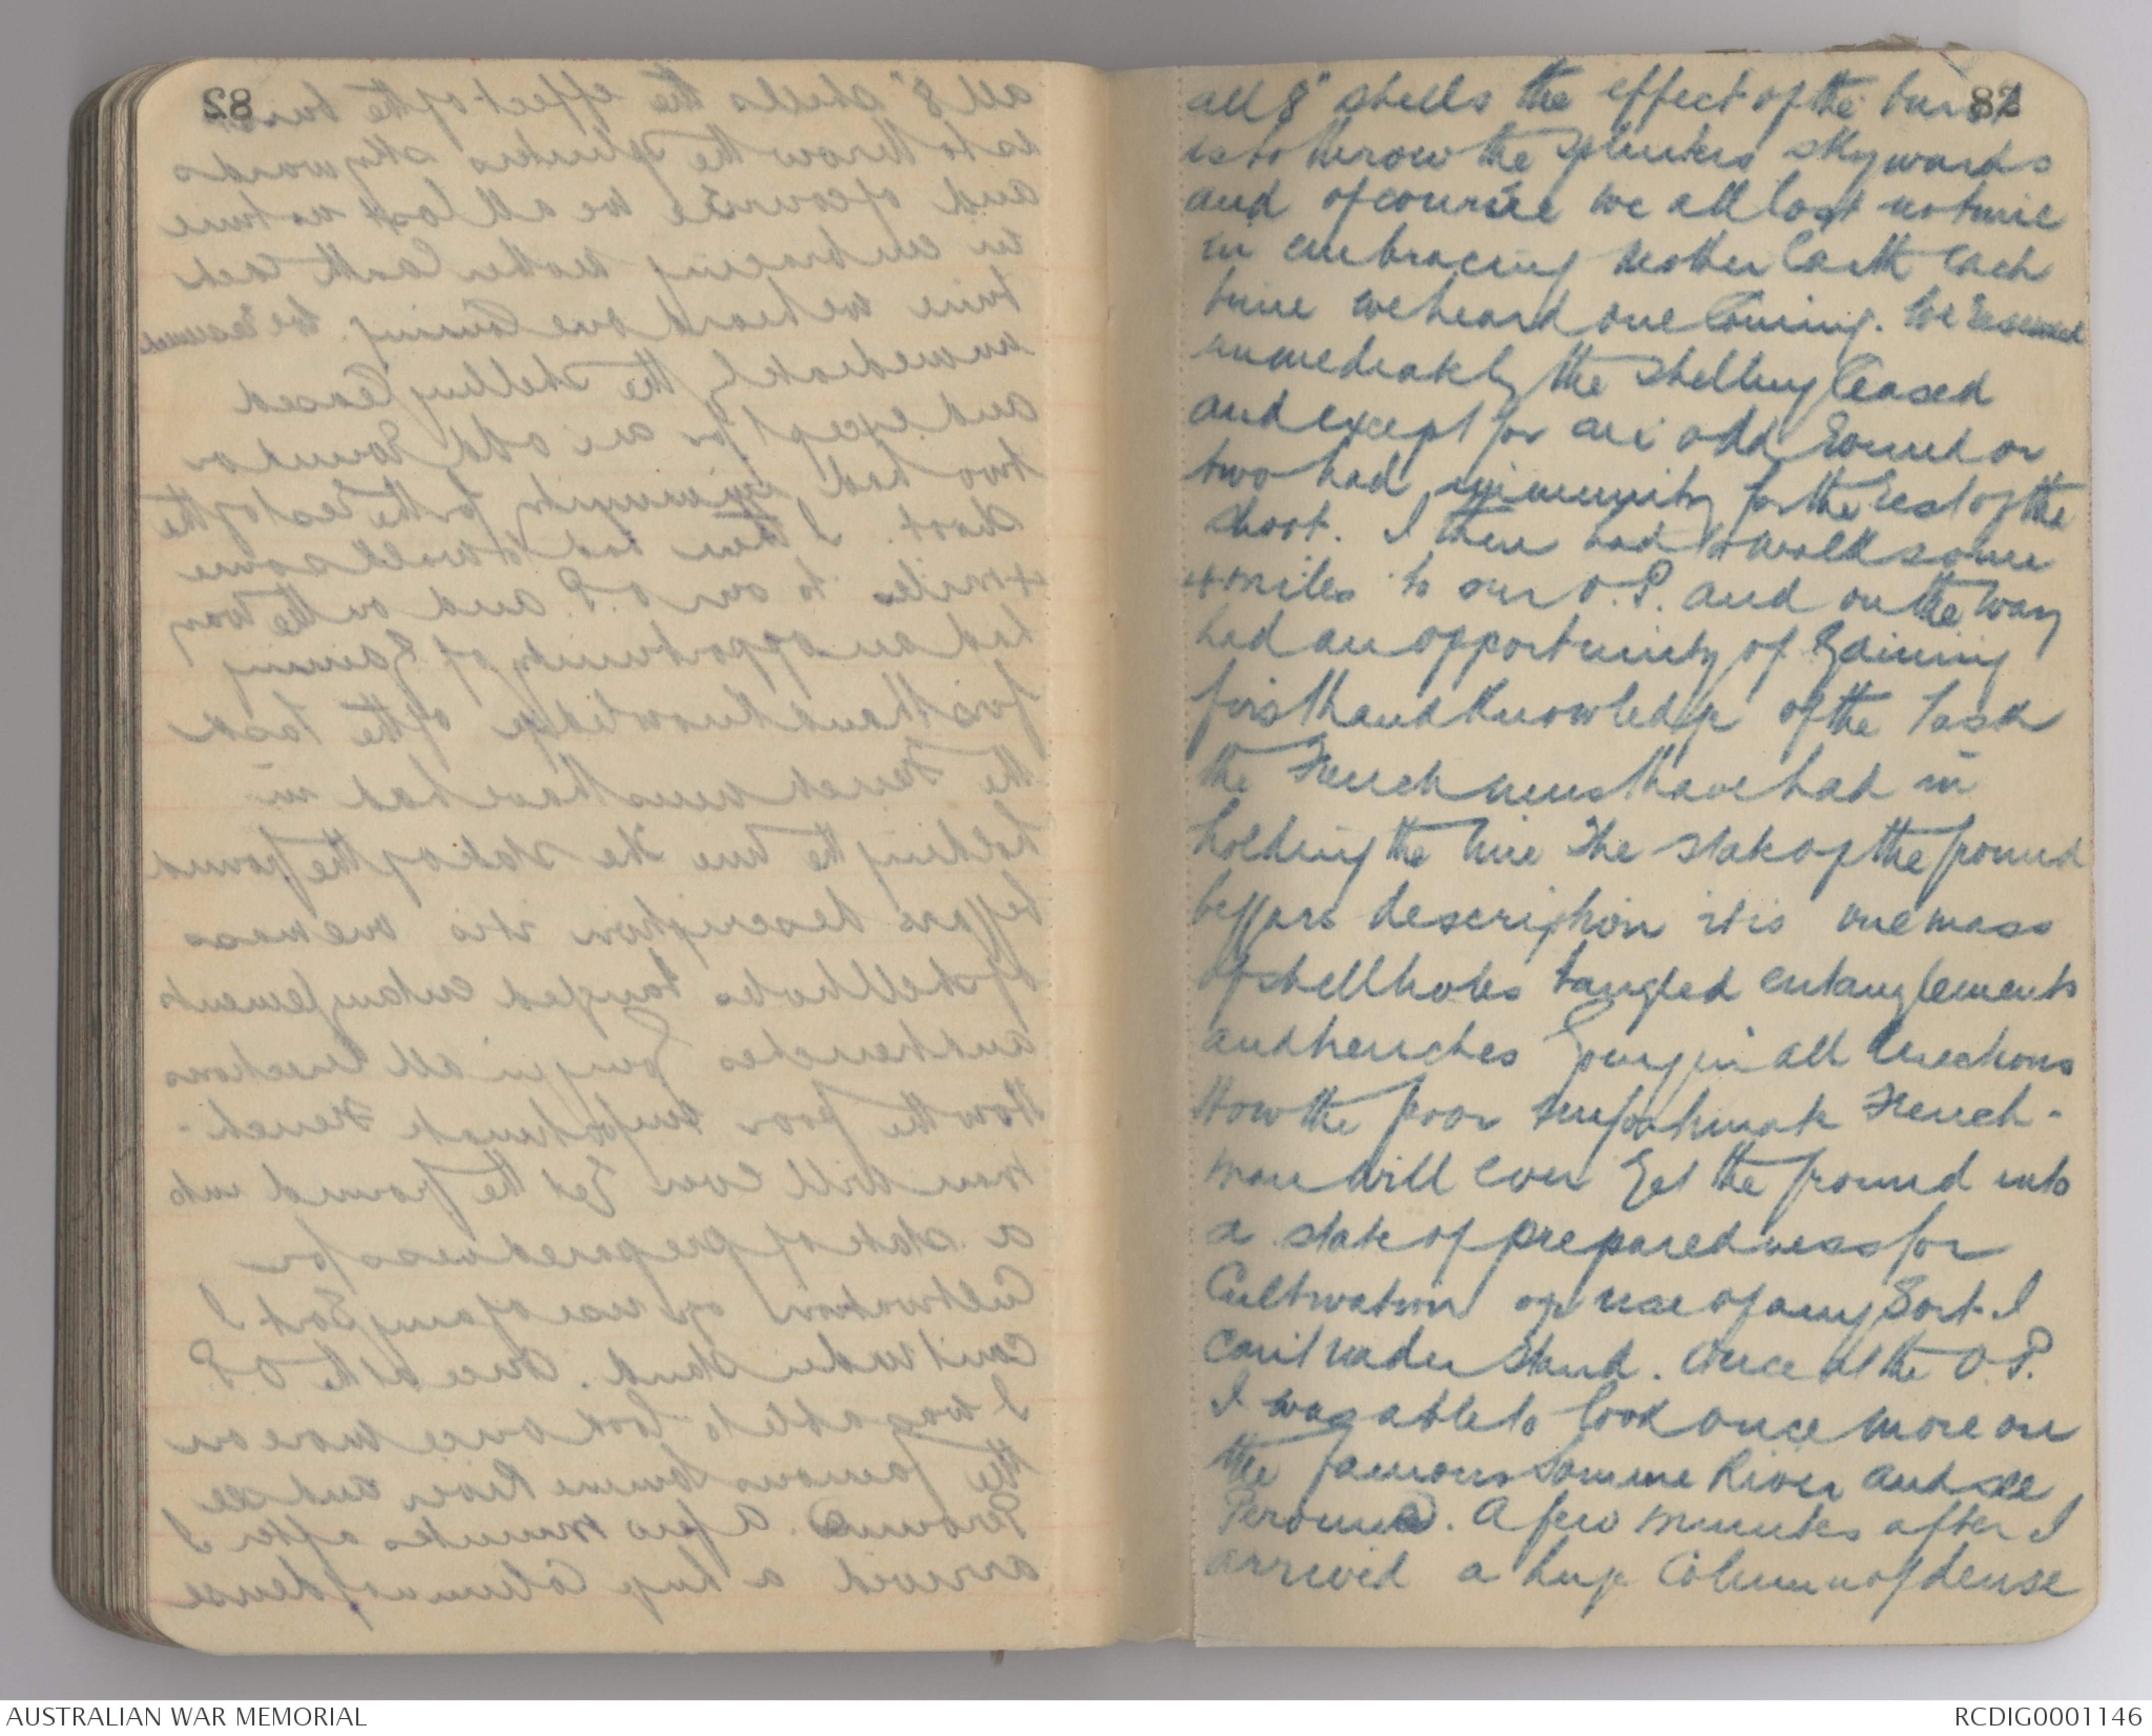 82
all 8" shells the effect of the burst
is to throw the splinters skywards
and of course we all lost no time
in embracing Mother Earth each
time we heard one coming. We resumed
immediately the shelling ceased
and except for an odd round or
two had immunity for the rest of the
shoot. I then had to walk some
4 miles to our O.P. and on the way
had an opportunity of gaining
first hand knowledge of the task
the French must have had in
holding the line The state of the ground
beggars description it is one mass
of shell holes tangled entanglements
and trenches going in all directions
How the poor unfortunate French-
man will ever get the ground into
a state of preparedness for
Cultivation or use of any sort I
can't understand. Once at the O.P.
I was able to look once more on
the famous Somme River and see
Peronne. A few minutes after I
arrived a huge Column of dense
AUSTRALIAN WAR MEMORIAL
RCDIG0001146